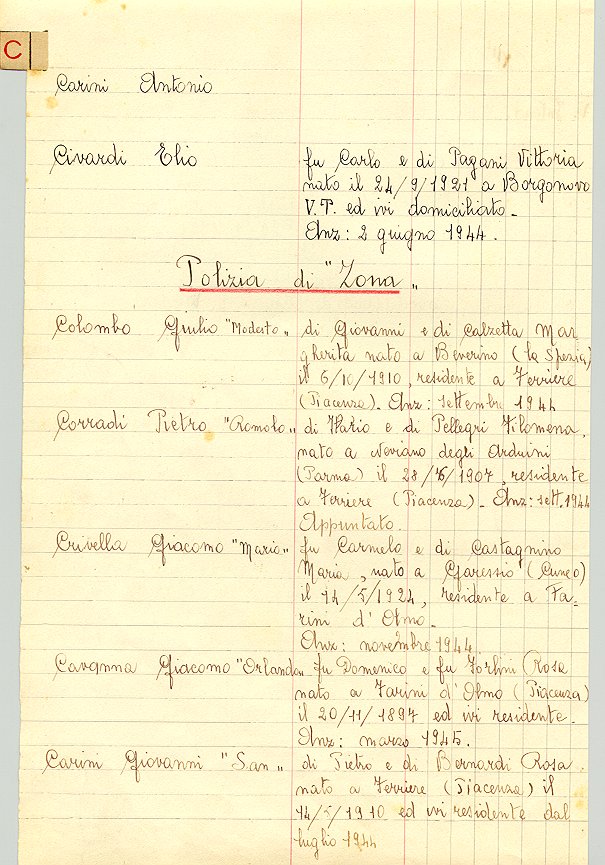 C
Carini Antonio
Civardi Elio fu Carlo e di Pagani Vittoria
nato il 24/9/1921 a Borgonovo
V.T. ed ivi domiciliato.
Anz: 2 giugno 1944.
Polizia di "Zona"
Colombo Giulio "Modesto" di Giovanni e di Calzetta Mar
gherita nato a Beverino (la Spezia)
il 6/10/1910, residente a Ferriere
(Piacenza). Anz: settembre 1944
Corradi Pietro "Romolo" di Ilario e di Pellegri Filomena,
nato a Neviano degli Arduini
(Parma) il 28/7/1907, residente
a Ferriere (Piacenza). Anz: sett. 1944
Appuntato.
Crivella Giacomo "Mario" fu Carmelo e di Castagnino
Maria, nato a Garessio (Cuneo)
il 14/5/1924, residente a Fa-
rini d'Olmo.
Anz: novembre 1944.
Cavanna Giacomo "Orlando" fu Domenico e fu Forlini Rosa
nato a Farini d'Olmo (Piacenza)
il 20/11/1897 ed ivi residente.
Anz: marzo 1945.
Carini Giovanni "San" di Pietro e di Bernardi Rosa
nato a Ferriere (Piacenza) il
14/5/1910 ed ivi residente dal
luglio 1944